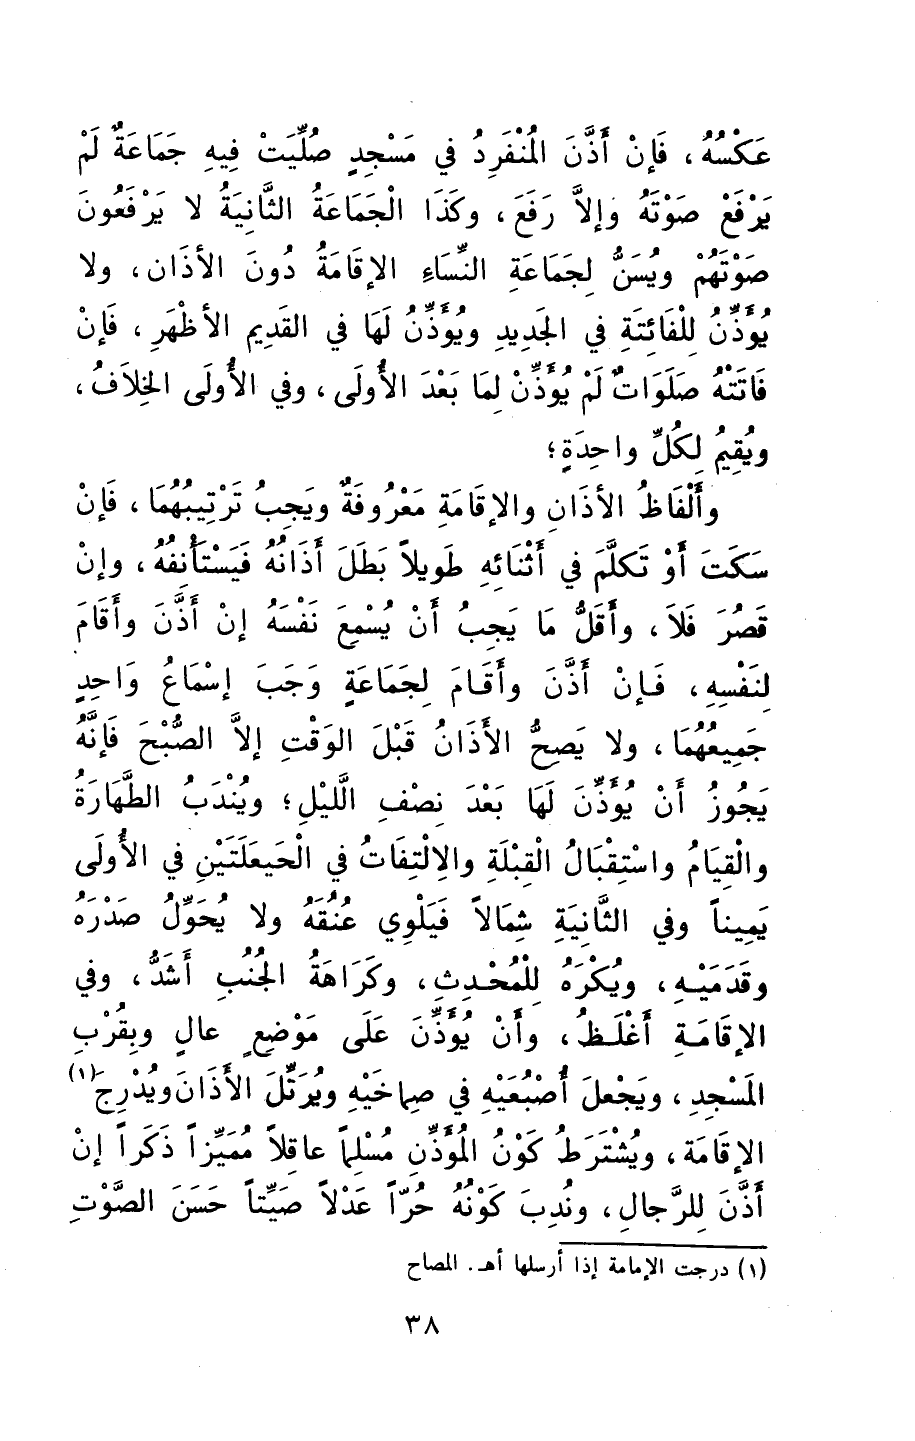 عَكْسُهُ، فَإِنْ أَذَّنَ الْمُنْفَرِدُ في مَسْجِدٍ صُلِّيَتْ فِيهِ جَمَاعَةٌ لَمْ
يَرْفَعْ صَوْتَهُ وإلاَّ رَفَعَ، وكَذَا الْجَمَاعَةُ الثَّانِيَةُ لا يَرْفَعُونَ
صَوْتَهُمْ ويُسَنُّ لِجَمَاعَةِ النِّسَاءِ الإقَامَةُ دُونَ الأذَانِ، ولا
يُؤَذِّنُ لِلْفَائِتَةِ في الجَدِيدِ ويُؤَذِّنُ لَهَا في القَدِيمِ الأظْهَرِ، فَإنْ
فَاتَتْهُ صَلَوَاتٌ لَمْ يُؤَذِّنْ لِمَا بَعْدَ الأُولَى، وفي الأُولَى الخِلاَفُ،
ويُقِيمُ لِكُلِّ واحِدَةٍ؛
وأَلْفَاظُ الأذَانِ والإقَامَةِ مَعْرُوفَةٌ ويَجِبُ تَرْتِيبُهُمَا، فَإنْ
سَكَتَ أَوْ تَكلَّمَ في أَثْنَائِهِ طَوِيلاً بَطَلَ أَذَانُهُ فَيَسْتَأْنِفُهُ، وإنْ
قَصُرَ فَلاَ، وأَقَلُّ مَا يَجِبُ أَنْ يُسْمِعَ نَفْسَهُ إنْ أَذَّنَ وأَقَامَ
لِنَفْسِهِ، فَإنْ أَذَّنَ وأَقَامَ لِجَمَاعَةٍ وَجَبَ إسْمَاعُ وَاحِدٍ
جَمِيعُهُمَا، ولا يَصِحُّ الأَذَانُ قَبْلَ الوَقْتِ إلاَّ الصُّبْحَ فَإنَّهُ
يَجُوزُ أَنْ يُؤَذِّنَ لَهَا بَعْدَ نِصْفِ اللَّيْلِ؛ ويُنْدَبُ الطَّهَارَةُ
والْقِيَامُ واسْتِقْبَالُ الْقِبْلَةِ والِالْتِفَاتُ في الْحَيعَلَتَيْنِ في الأُولَى
يَمِيناً وفي الثَّانِيَةِ شِمَالاً فَيَلْوِي عُنُقَهُ ولا يُحَوِّلُ صَدْرَهُ
وقَدَمَيْهِ، ويُكْرَهُ لِلْمُحْدِثِ، وكَرَاهَةُ الجُنُبِ أَشَدُّ، وفي
الإقَامَةِ أَغْلَظُ، وأَنْ يُؤَذِّنَ عَلَى مَوْضِعٍ عالٍ وبِقُرْبِ
المَسْجِدِ، ويَجْعلَ أُصْبُعَيْهِ في صِماخَيْهِ ويُرَتِّلَ الأَذَانَ ويُدْرِجَ(١)
الإقَامَة، ويُشْتَرَطُ كَوْنُ المُؤَذِّنِ مُسْلِماً عاقلاً مُمَيِّزاً ذَكَراً إنْ
أَذَّنَ لِلرَّجالِ، ونُدِبَ كَوْنُهُ حُرّاً عَدْلاً صَيِّتاً حَسَنَ الصَّوْتِ
(١) درجت الإمامة إذا أرسلها أهـ. المصاح
٣٨